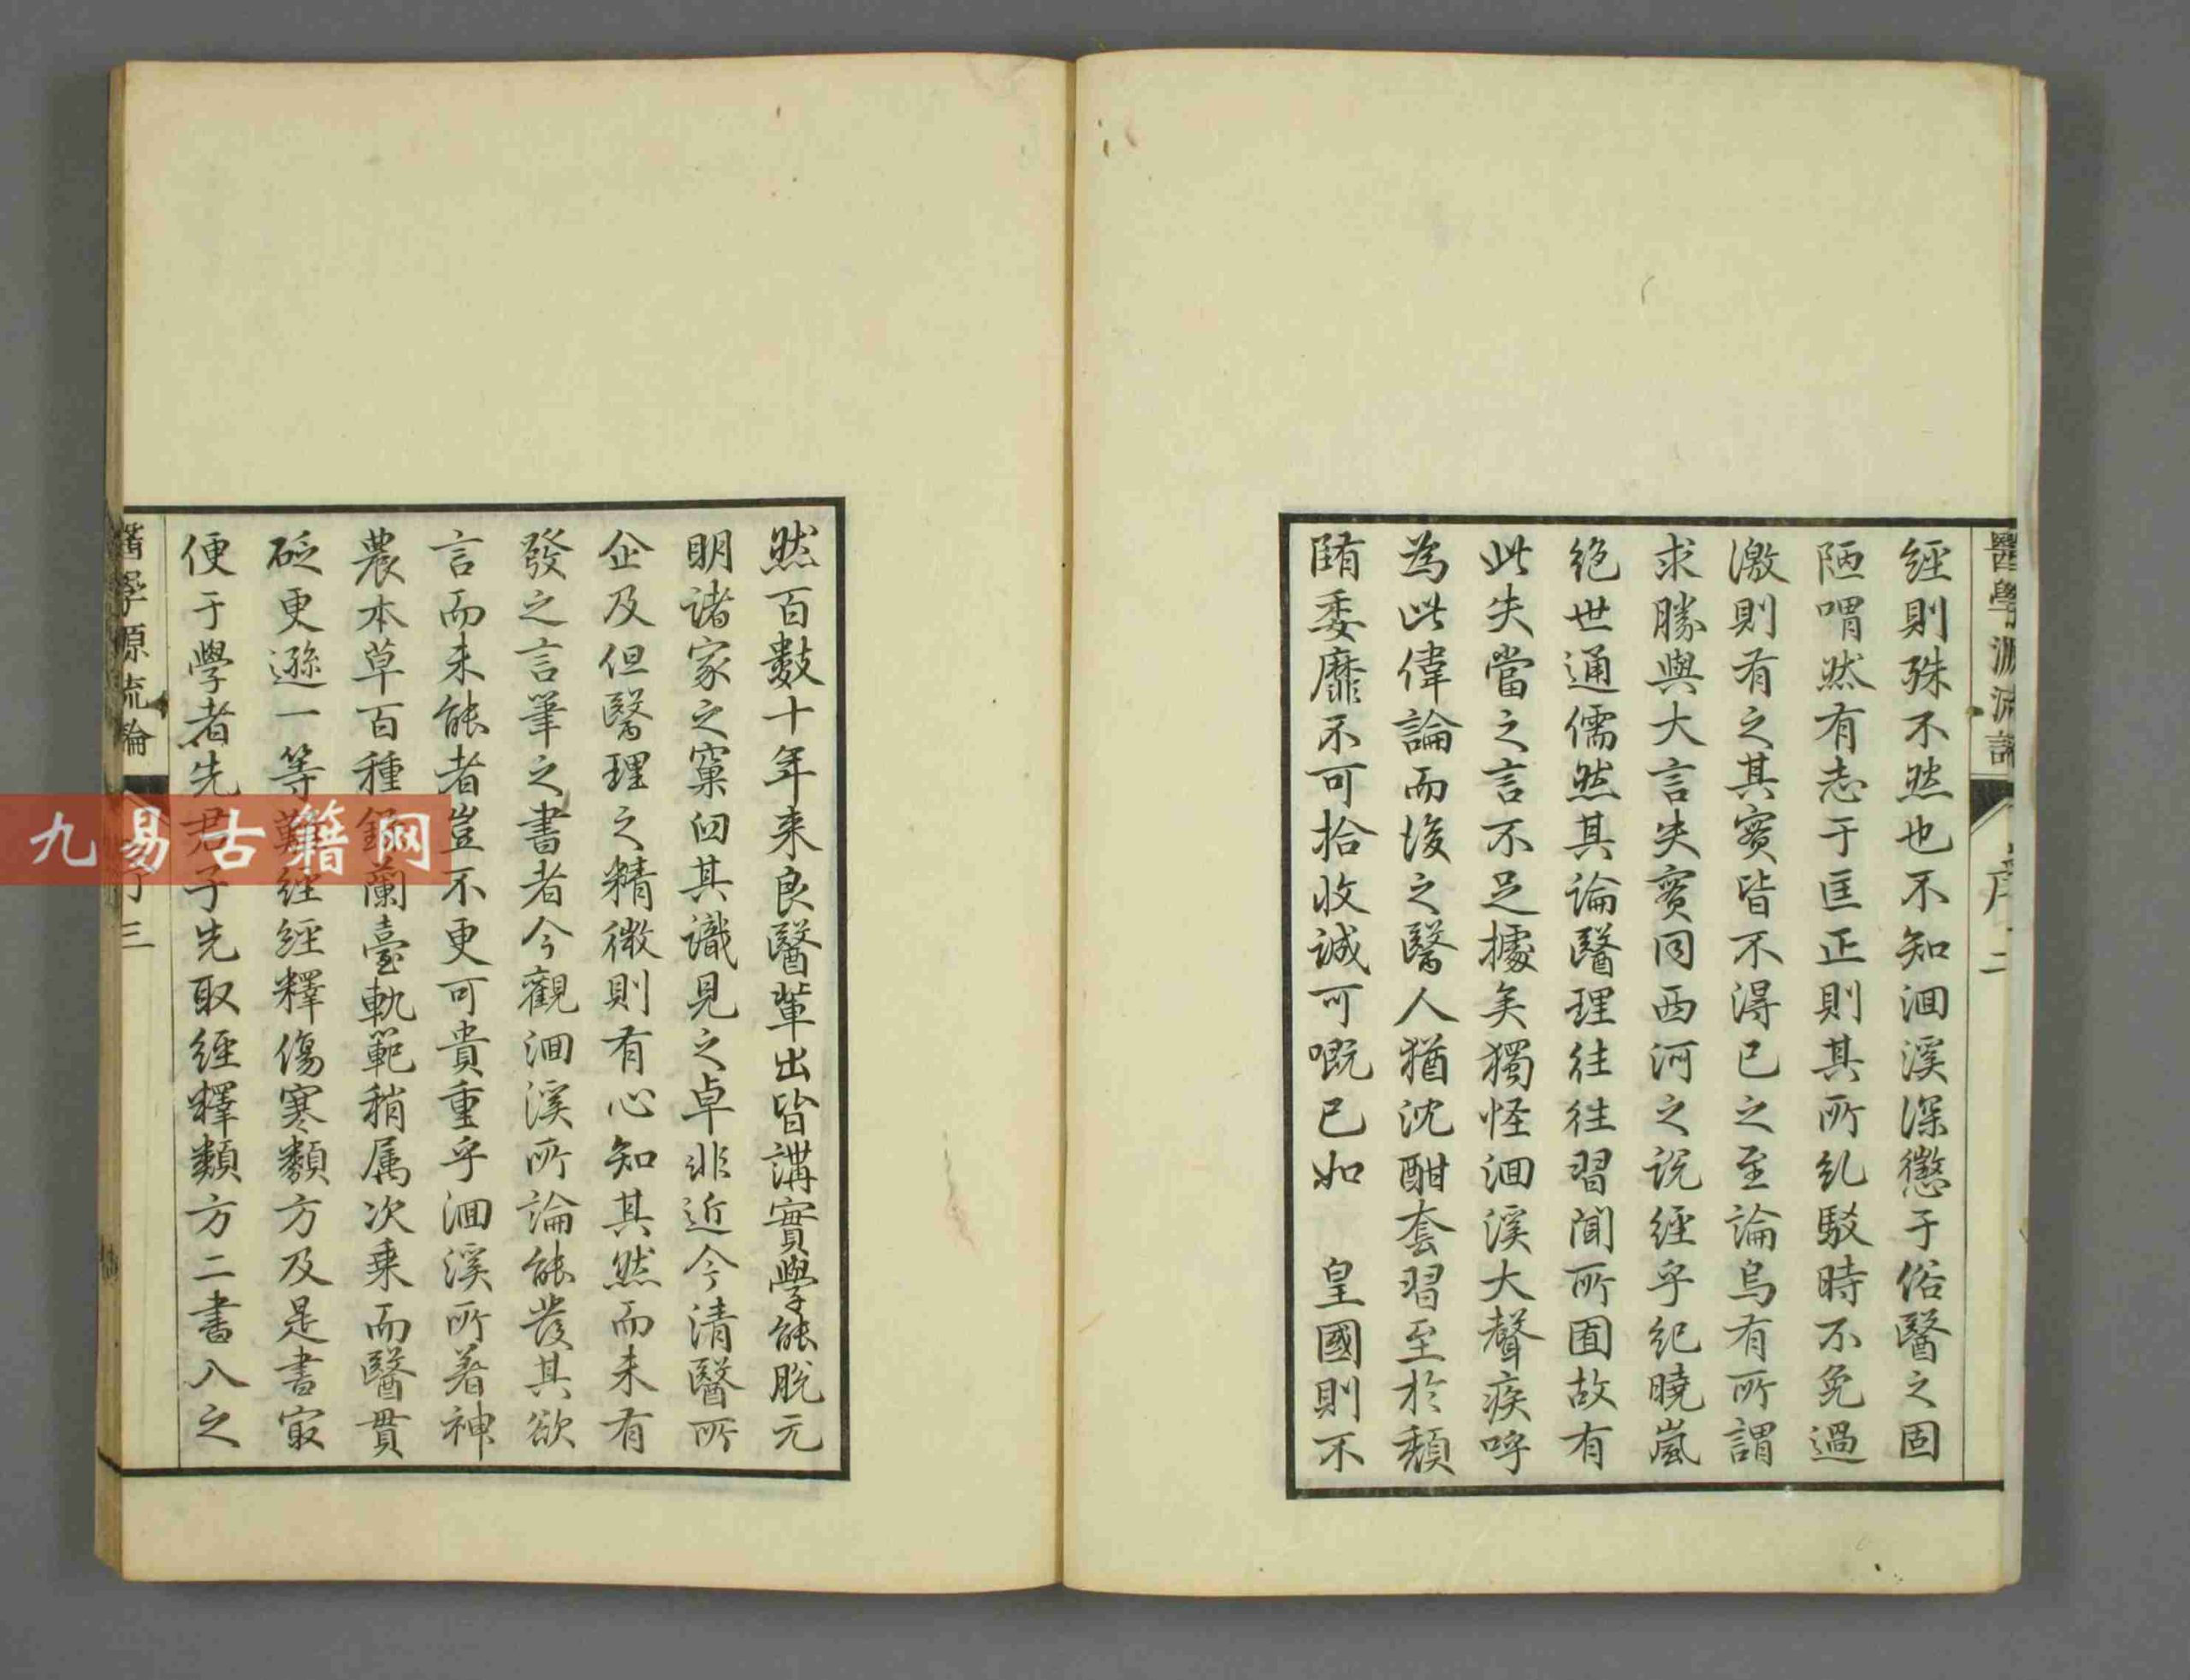 醫學源流論
序 二
經則殊不然也不知洄溪深懲于俗醫之固
陋喟然有志于匡正則其所糺駁時不免過
激則有之其實皆不得已之至論烏有所謂
求勝與大言失實同西河之說經乎紀曉嵐
絶世通儒然其論醫理往往習聞所囿故有
此失當之言不足據矣獨怪洄溪大聲疾呼
為此偉論而後之醫人猶沈酣套習至於頹
陏委靡不可拾收誠可嘅已如　皇國則不
然百數十年来良醫輩出皆講實學能脫元
明諸家之窠臼其識見之卓非近今清醫所
企及但醫理之精微則有心知其然而未有
發之言筆之書者今觀洄溪所論能發其欲
言而未能者豈不更可貴重乎洄溪所著神
農本草百種錄蘭臺軌範稍属次乗而醫貫
砭更遜一等難經經釋傷寒類方及是書㝡
便于學者先君子先取經釋類方二書入之
醫學源流論
三
九易古籍网